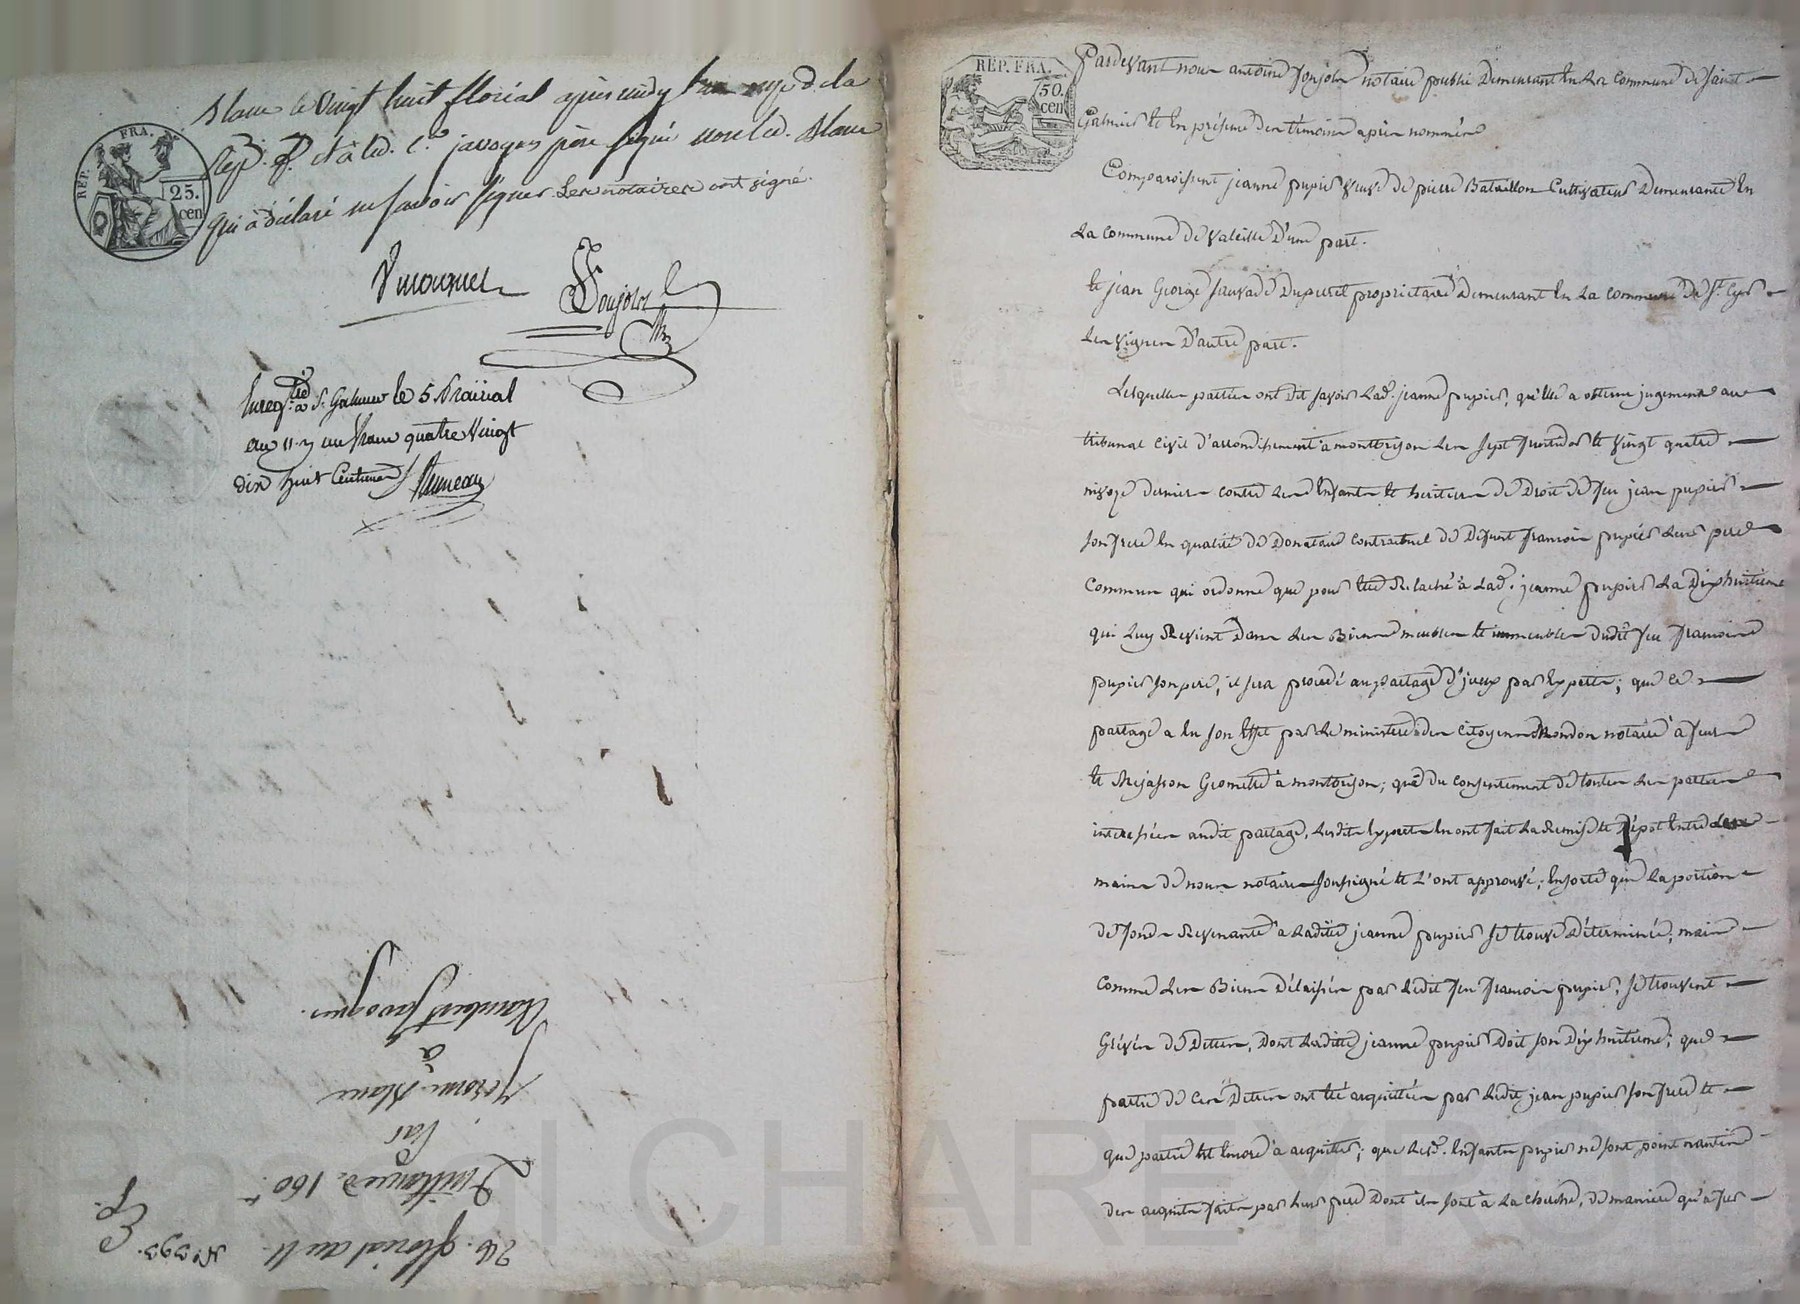 Blanc le vingt huit floréal après midy l'an onze d. la
Rép. f. et à lad. C.e javogues père signé non led. Blanc
qui a déclaré ne savoir signer. Les notaires ont signé.
REP. FRA.
25.
cen
Ponjolor
Enreg.tré à S.t Galmier le 5 Prairial
an 11. un franc quatre vingt
dix huit Centimes
28. floréal an 11.
N.o 393.
Ep.
Quittance d. 160.f
Par
Jérome Blanc
à
Javogues.
REP. FRA.
50.
cen
Pardevant nous antoine notaire public demeurant en La Commune de Saint
Galmier et en présence des témoins après nommés
Comparoissent jeanne pupier veuve de pierre Bataillon Cultivateur demeurante en
La Commune de Valeille d'une part.
et jean George Sauvade Duperret propriétaire demeurant en La Commune de S.t Cyr
Les Vignes d'autre part.
Lesquelles parties ont dit savoir Lad. jeanne pupier, qu'elle a obtenu jugement au
tribunal civil d'arrondissement à montbrison Les Sept fructidor et vingt quatre
nivose dernier contre Les Enfants et heritiers de Droit de feu jean pupier
son frere En qualité de Donataire Contractuel de Defunt francois pupier Leur pere
Commun qui ordonne que pour être Relaché à Lad. jeanne pupier La Dixhuitieme
qui Luy Revient Dans Les Biens meubles et immeubles dudit feu francois
pupier son pere, il sera procedé au partage d'iceux par Experts; que ce
partage a eu son Effet par Le ministere des Citoyens Rondon notaire à feurs
et Rejasson Geometre à montbrison; que du consentement de toutes Les parties
interessées audit partage, Lesdits Experts En ont fait La Remise et Dépot Entre Les
mains de nous notaire soussigné et L'ont approuvé; Ensorte que La portion
de fonds Revenante à Ladite jeanne pupier se trouve Déterminée; mais
Comme Les Biens Délaissés par Ledit feu francois pupier, se trouvent
Grévés de Dettes, Dont Ladite jeanne pupier Doit son Dixhuitieme; que
partie de Ces Dettes ont été acquittées par Ledit jean pupier son frere et
que partie Est Encore à acquitter; que Lesd. Enfants pupier ne sont point nantis
des acquits faits par Leur pere Dont ils sont à La cherche, de maniere qu'à Sur
CHAREYRON